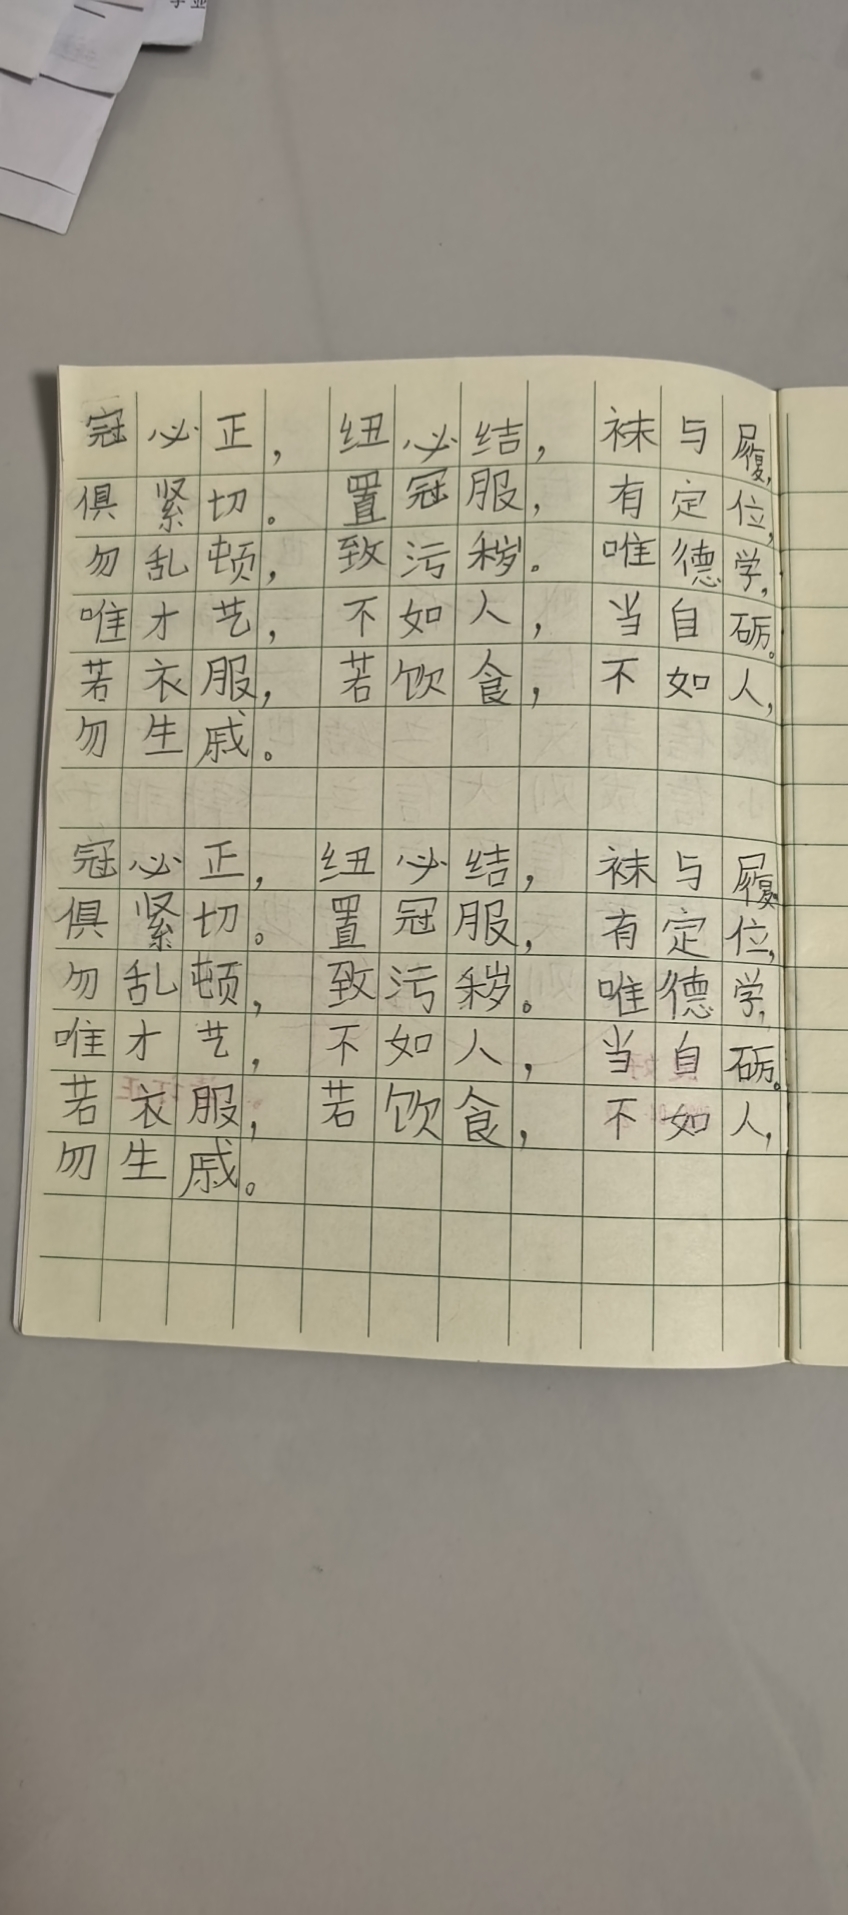 冠必正，纽必结，袜与履，
俱紧切。置冠服，有定位，
勿乱顿，致污秽。唯德学，
唯才艺，不如人，当自砺。
若衣服，若饮食，不如人，
勿生戚。
冠必正，纽必结，袜与履，
俱紧切。置冠服，有定位，
勿乱顿，致污秽。唯德学，
唯才艺，不如人，当自砺。
若衣服，若饮食，不如人，
勿生戚。